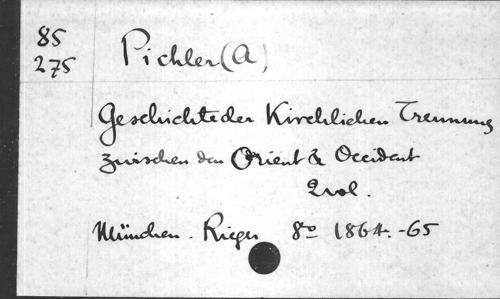 85
275
Pichler (A)
Geschichte der Kirchlichen Trennung
zwischen den Orient & Occident
2 vol.
München. Rieger 8º 1864.-65